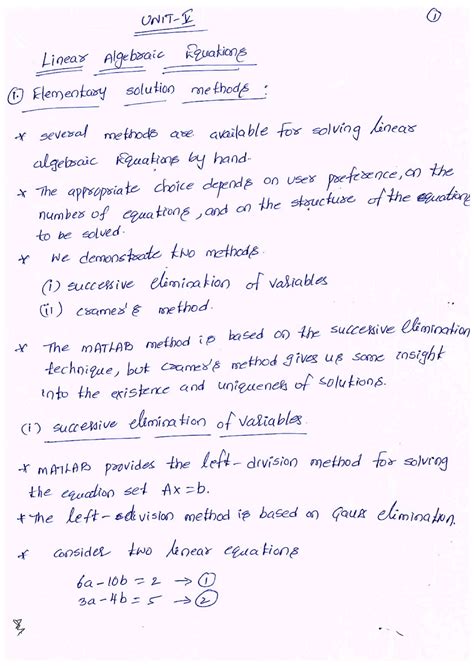 UNIT-V
①
Linear Algebraic Equations
①. Elementary solution methods :
* several methods are available for solving linear
algebraic Equations by hand.
* The appropriate choice depends on user preference, on the
number of equations, and on the structure of the equations
to be solved.
* We demonstrate two methods.
(i) successive elimination of variables
(ii) cramer's method.
* The MATLAB method is based on the successive elimination
technique, but cramer's method gives us some insight
into the existence and uniqueness of solutions.
(i) successive elimination of variables.
* MATLAB provides the left-division method for solving
the equation set Ax=b.
* The left-division method is based on Gauss elimination.
* consider two linear equations
6a-10b=2 → ①
3a-4b=5 → ②